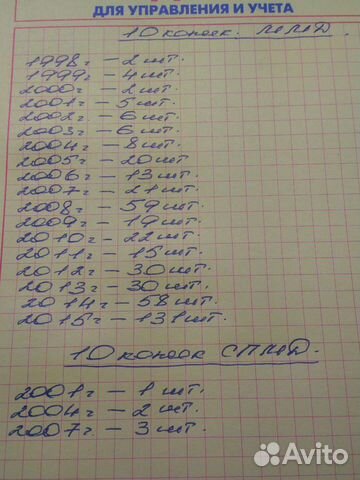 ДЛЯ УПРАВЛЕНИЯ И УЧЕТА
10 копеек. ММД.
1998г – 2 шт.
1999г – 4 шт.
2000г – 2 шт.
2001г – 5 шт.
2002г – 6 шт.
2003г – 6 шт.
2004г – 8 шт.
2005г – 20 шт
2006г – 13 шт.
2007г – 21 шт.
2008г – 59 шт.
2009г – 19 шт.
2010г – 22 шт.
2011г – 15 шт.
2012г – 30 шт.
2013г – 30 шт.
2014г – 58 шт.
2015г – 131 шт.
10 копеек СПМД.
2001г – 1 шт.
2004г – 2 шт.
2007г – 3 шт.
Avito